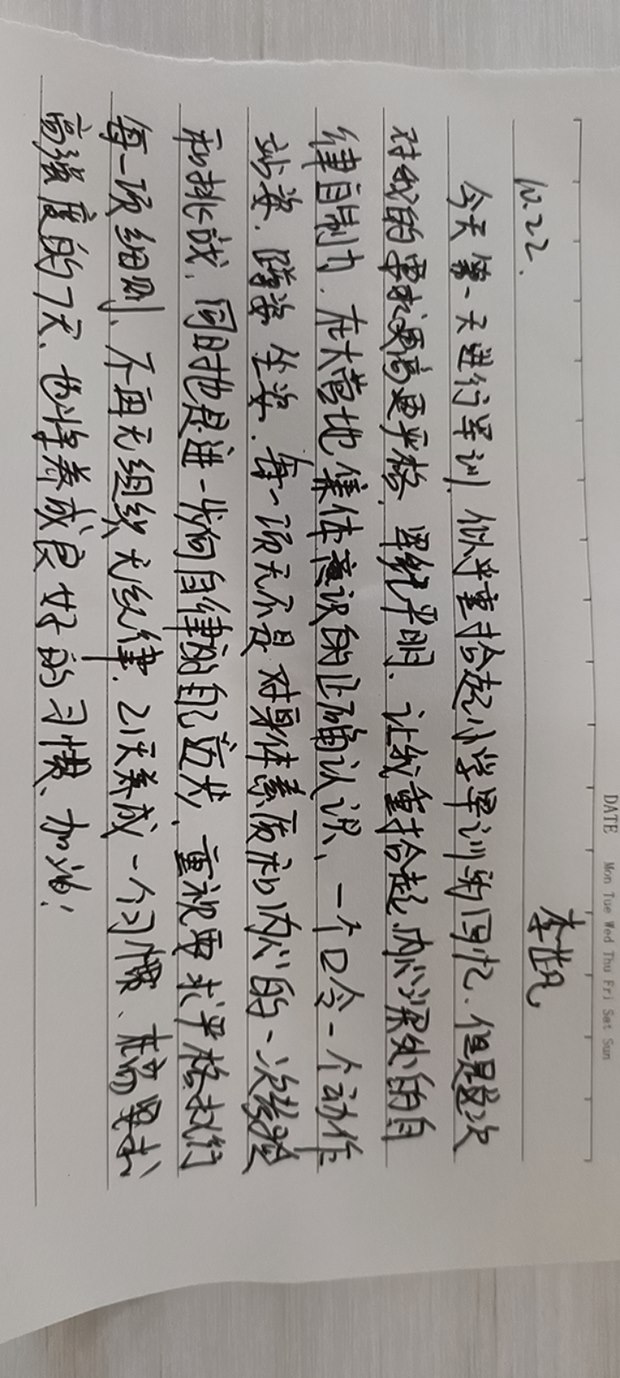 DATE Mon Tue Wed Thu Fri Sat Sun
10.22. 李世凡
今天第一天进行军训,似乎重拾起小学军训的回忆.但是这次
对我的要求更高更严格,军纪严明、让我重拾起内心深处的自
律自制力.在大营地集体意识的正确认识、一个口令一个动作
站姿.蹲姿.坐姿.每一项无不是对身体素质和内心的一次考验
和挑战,同时也是进一步向自律的自己迈大、重视要求严格执行
每一项细则、不再无组织无纪律.21天养成一个习惯、在高要求
高强度的7天、也将养成良好的习惯、加油!